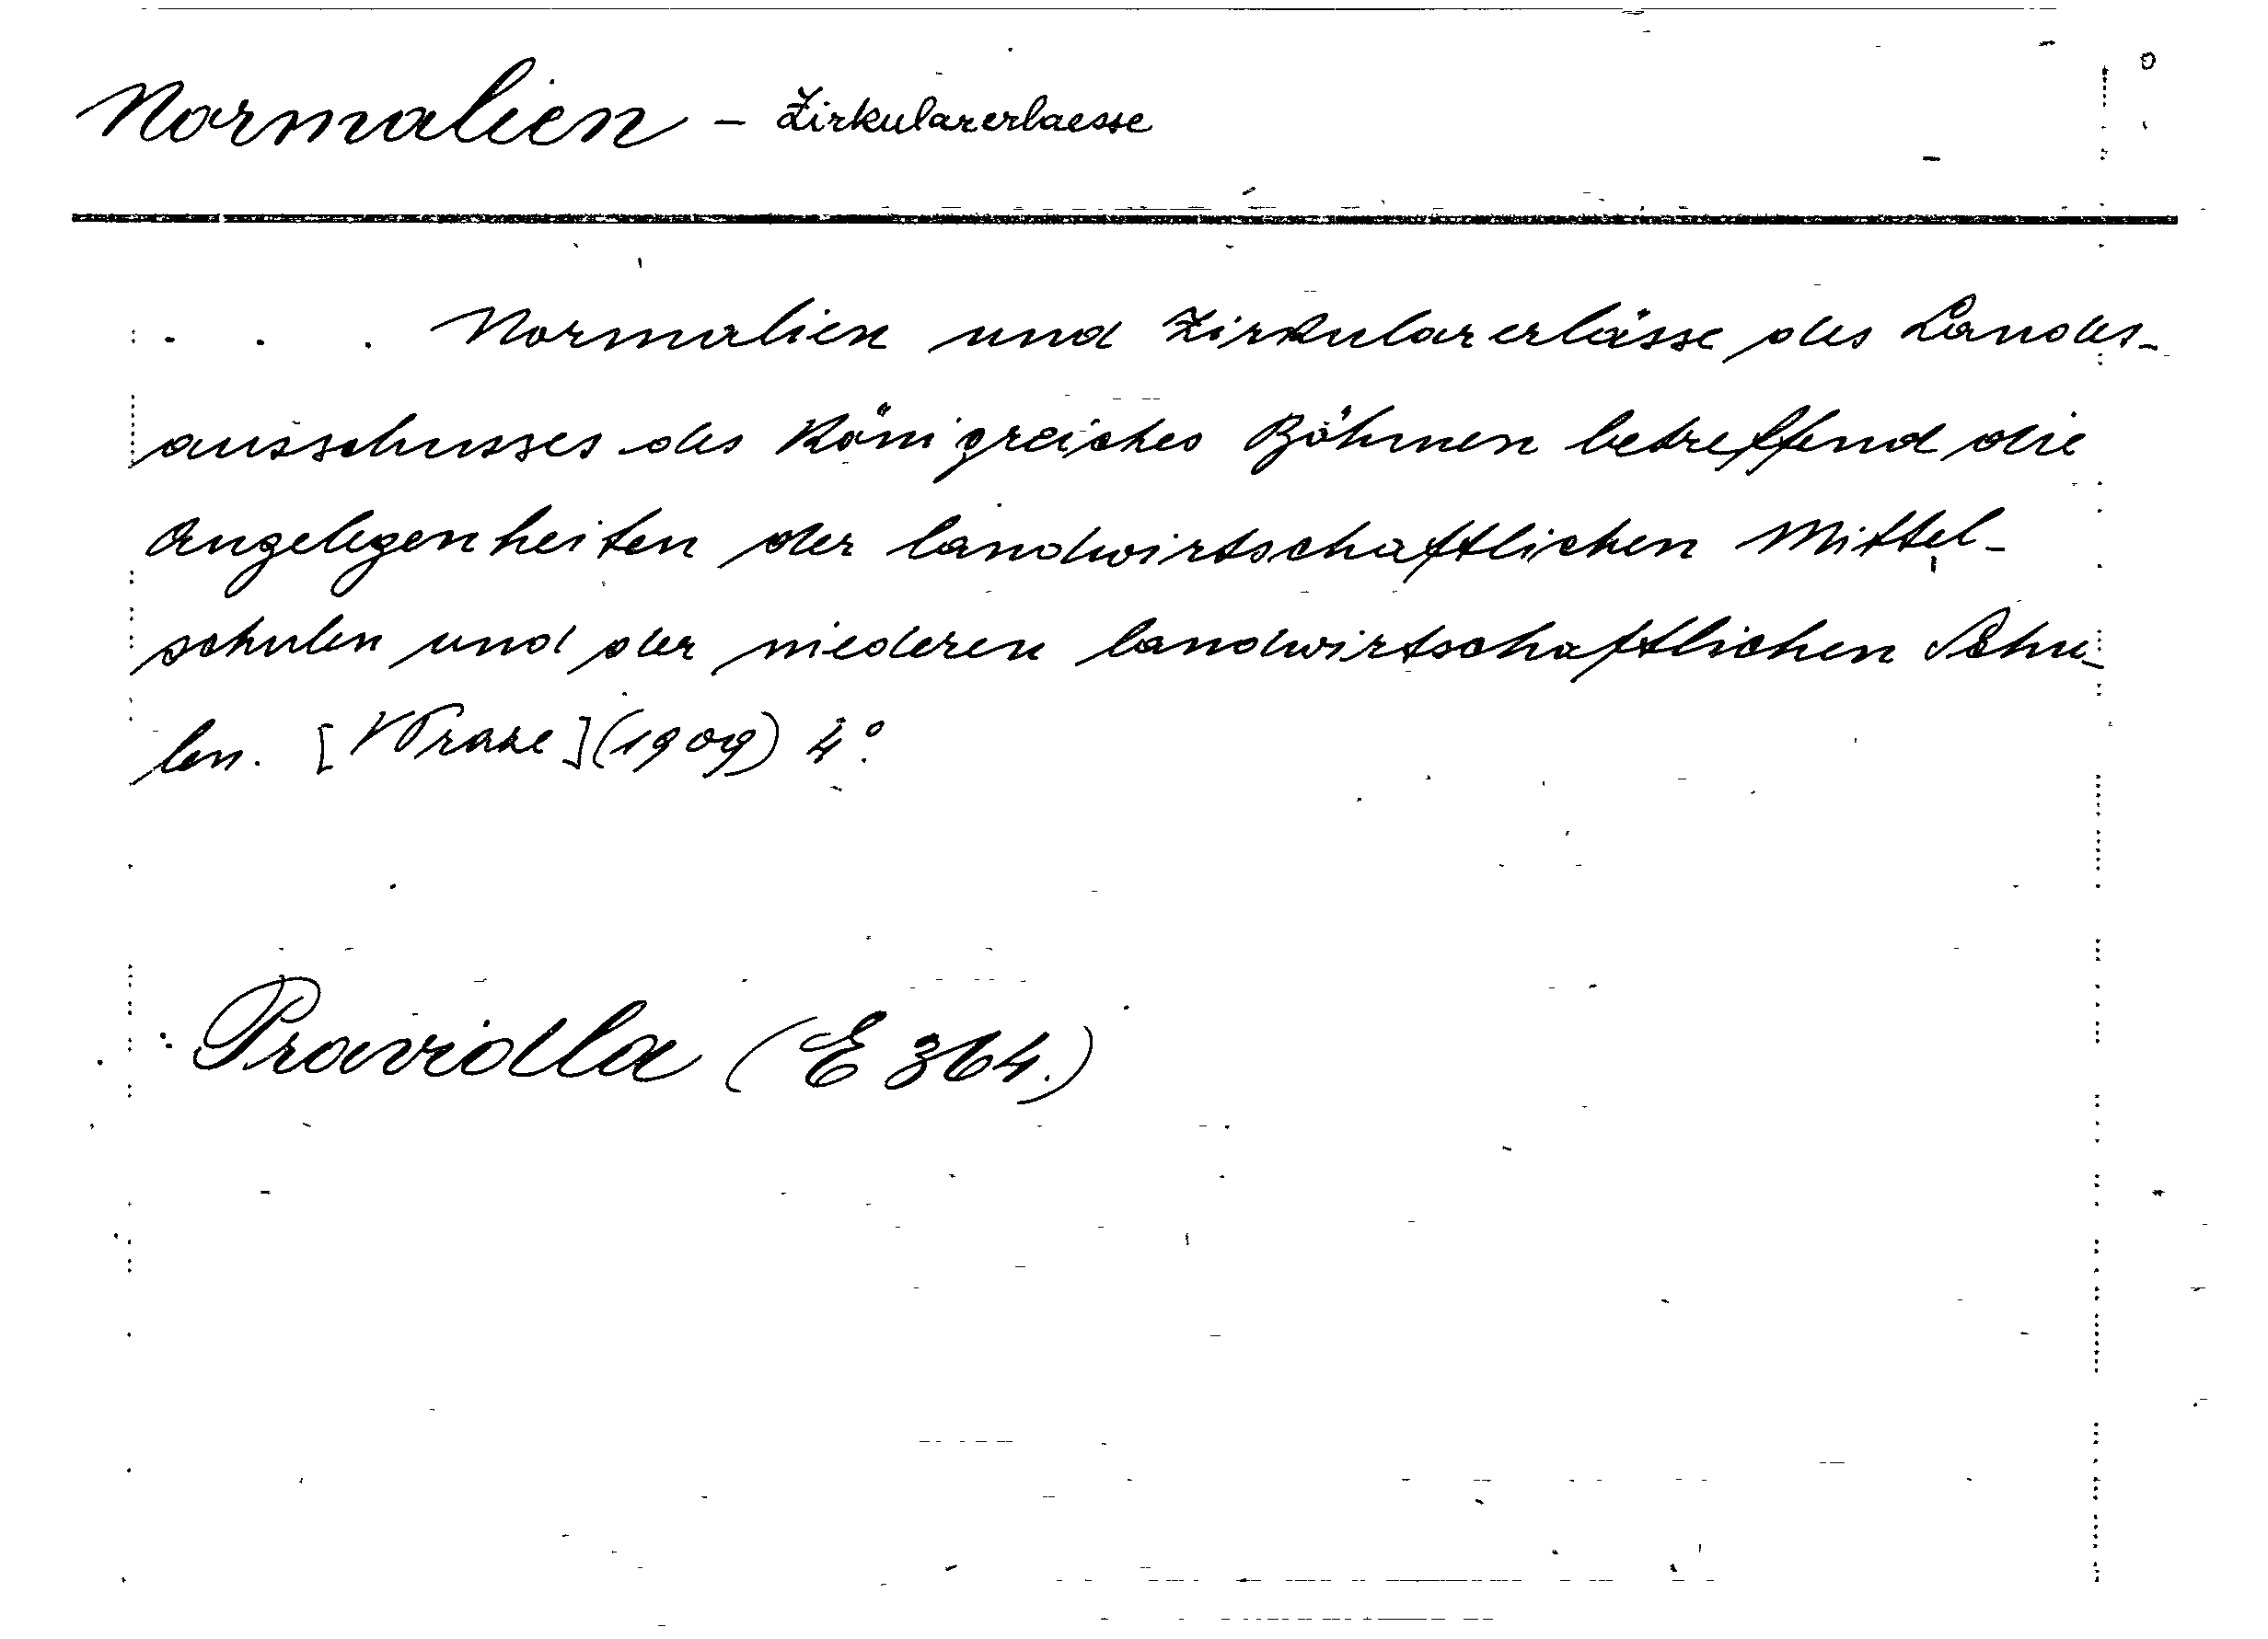 Normalien - Zirkularerlaesse
. . . Normalien und Zirkularerlässe des Landes-
ausschusses des Königreiches Böhmen betreffend die
Angelegenheiten der landwirtschaftlichen Mittel-
schulen und der niederen landwirtschaftlichen Schu-
len. [V Praze] (1909) 4°.
Pravidla (E 364.)